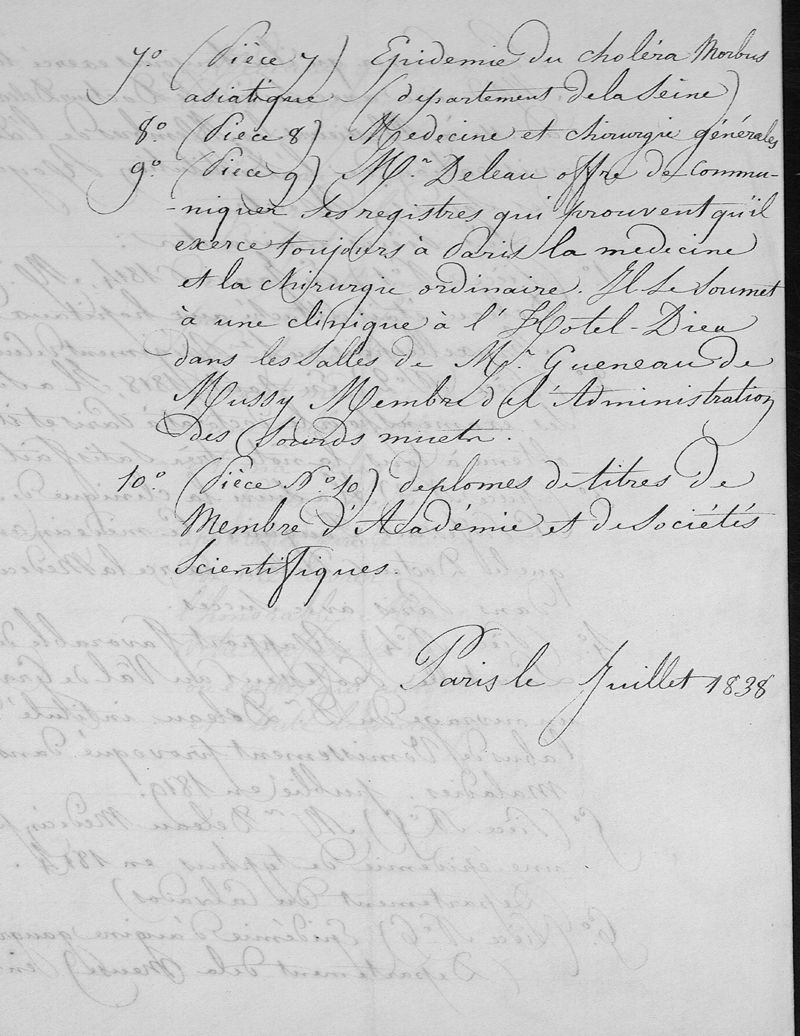 7º. (Pièce 7) Epidemie du choléra Morbus
asiatique (departement de la Seine)
8º. (Pièce 8) Medecine et chirurgie générales
9º. (Pièce 9) M.r Deleau offre de commu-
-niquer ses registres qui prouvent qu'il
exerce toujours à Paris la medecine
et la chirurgie ordinaire. Il se soumet
à une clinique à l'Hotel-Dieu
dans les salles de M.r Gueneau de
Mussy Membre de l'Administration
des Sourds muets.
10º (Pièce Nº 10) deplomes de titres de
Membre d'Académie et de Sociétés
Scientifiques.
Paris le Juillet 1838